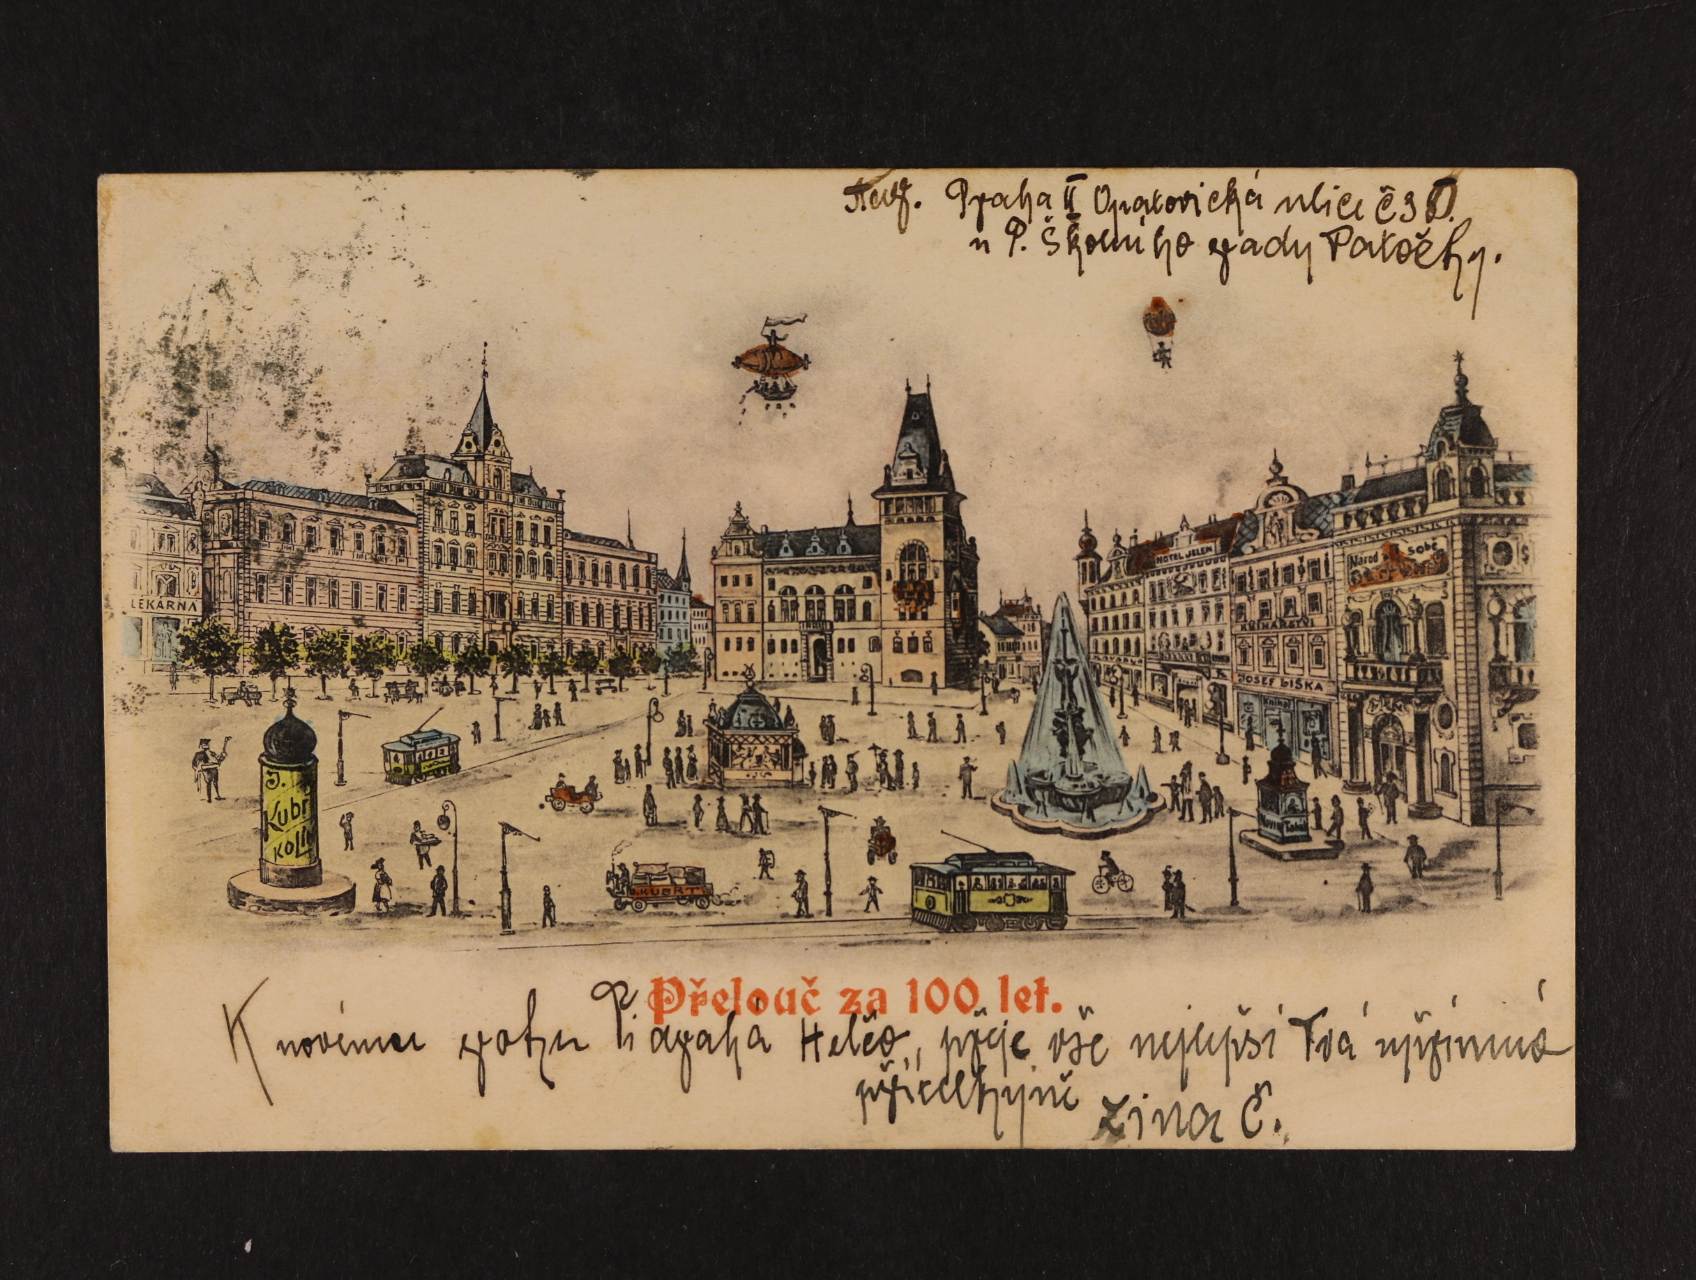 Praha II Opatovická ulice č
u P. Školního rady Patočky.
LÉKÁRNA
HOTEL JELEN
Národ sobě
KNIHAŘSTVÍ
JOSEF LIŠKA
J.
Kubr
Kolín
KUBRT
Přelouč za 100 let.
K novému roku Ti drahá Helčo, přeje vše nejlepší Tvá upřímná
přítelkyně
Zina Č.